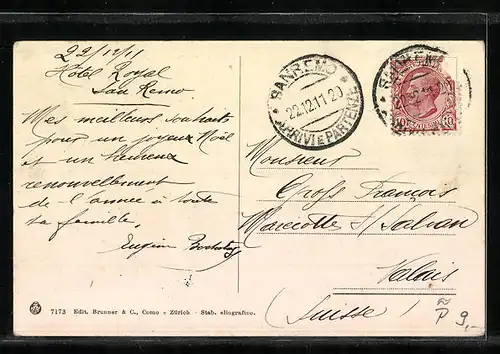 22/12/11
Hotel Royal
San Remo
Mes meilleurs souhaits
pour un joyeux Noël
et un heureux
renouvellement
de l'année à toute
ta famille.
Eugène
SANREMO
22.12.11 20
ARRIVI E PARTENZE
SANREMO
10 CENTESIMI 10
Monsieur
Gross François
Marecotte s/ Salvan
Valais
(Suisse)
7173 Edit. Brunner & C., Como - Zürich - Stab. eliografico.
P 9,-